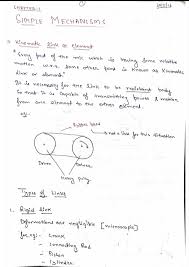 CHAPTER-1
SIMPLE MECHANISMS
Kinematic Link or Element
"Every part of the m/c which is having some relative
motion w.r.t. some other part is known as Kinematic
link or element"
It is necessary for the link to be resistant body
so that it is capable of transmitting power & motion
from one element to the other element.
eg:-
Rubber band
not a link for this situation
Driver
Driven
Types of Links
1. Rigid Link
Deformations are negligible [microscopic]
for eg:- Crank
- Connecting Rod
- Piston
- Cylinder